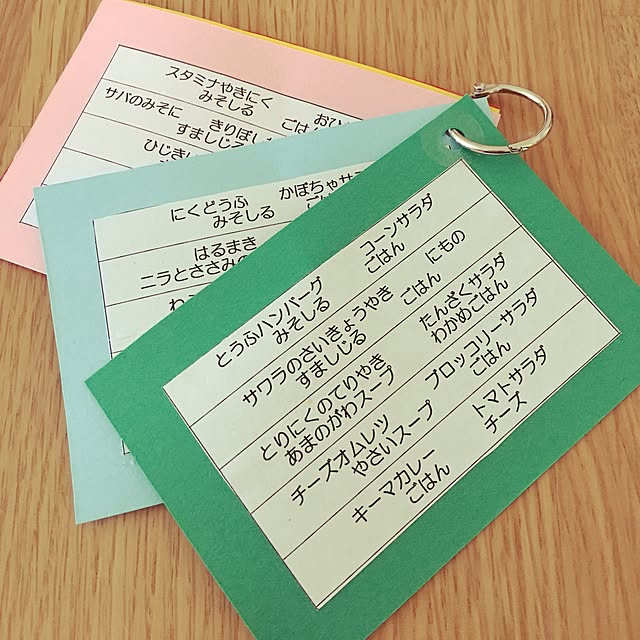 スタミナやきにく
みそしる
サバのみそに きりぼし
ごはん
すましじる
ひじき
にくどうふ かぼちゃサラ
みそしる
はるまき
ニラとささみの
とうふハンバーグ コーンサラダ
みそしる ごはん
サワラのさいきょうやき にもの
すましじる ごはん
とりにくのてりやき たんざくサラダ
あまのがわスープ わかめごはん
チーズオムレツ ブロッコリーサラダ
やさいスープ ごはん
キーマカレー トマトサラダ
ごはん チーズ